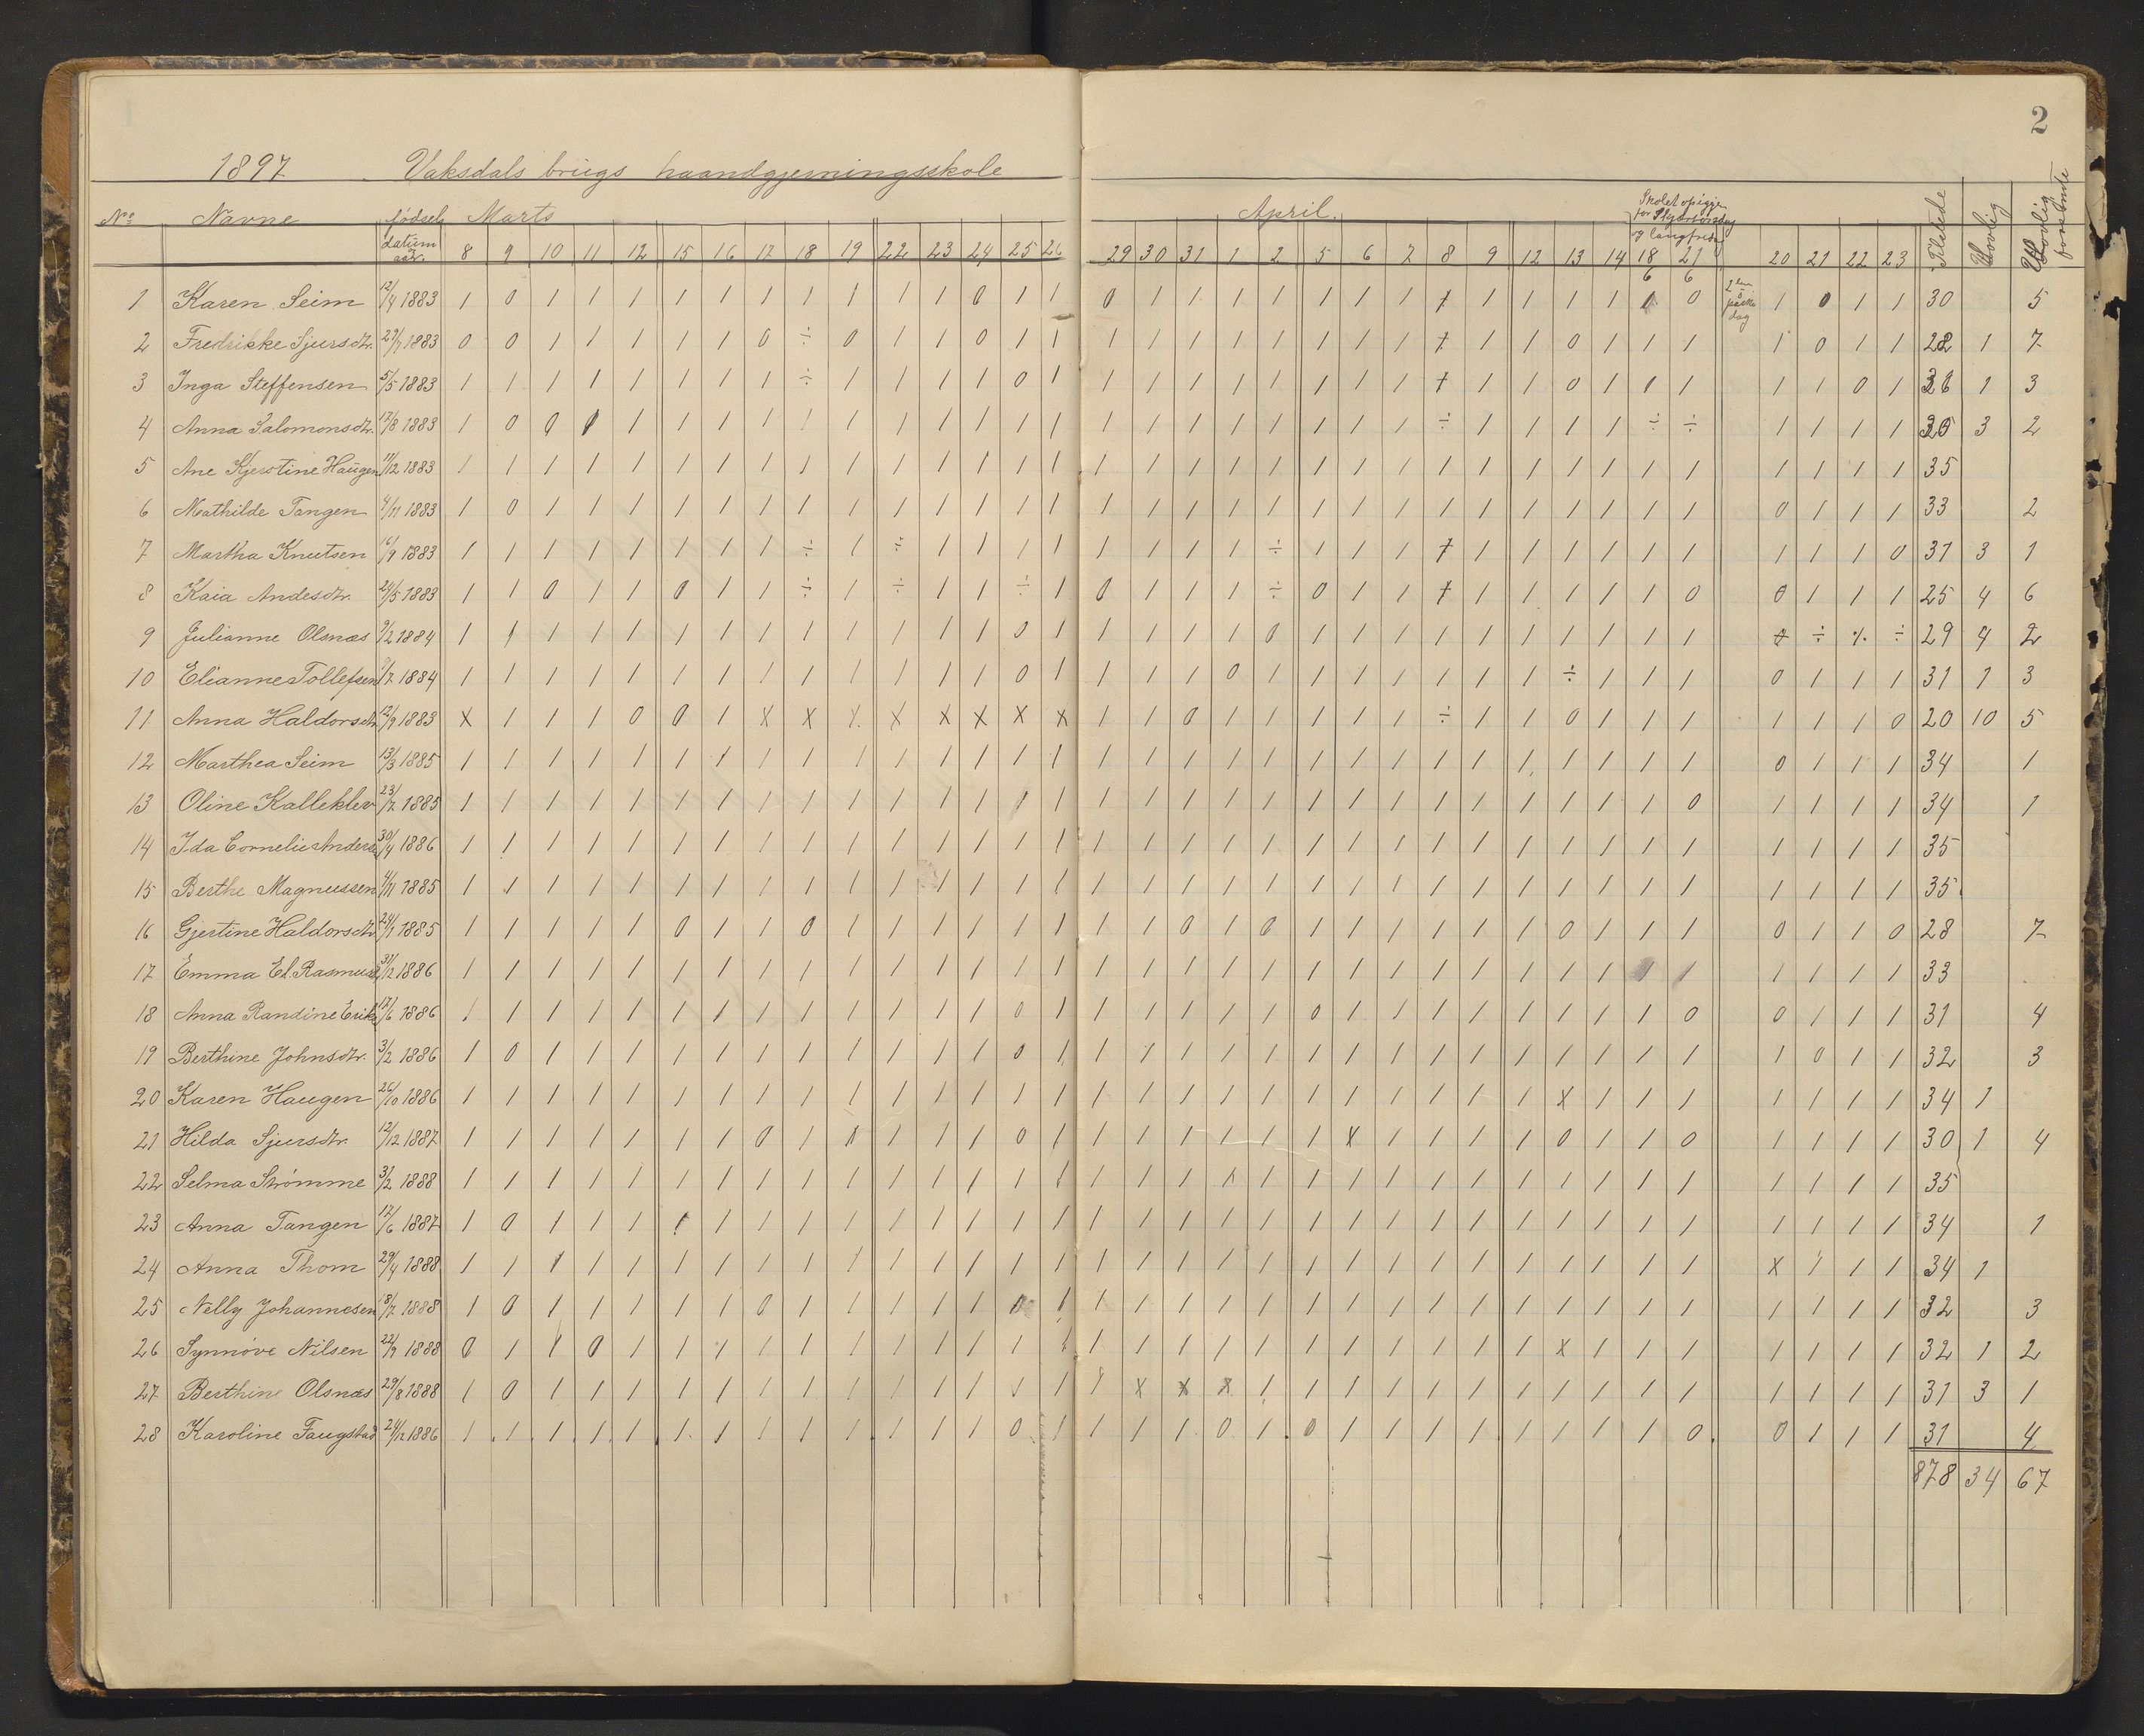 2
1897 Vaksdals brugs haandgjerningsskole
No Navne fødsels datum aar. Marts April. Skolet opigjen for Skjærtorsdag og langfredag Tilstede Lovlig Ulovlig forsømte
8 9 10 11 12 15 16 17 18 19 22 23 24 25 26 29 30 31 1 2 5 6 7 8 9 12 13 14 18 21 20 21 22 23
6 6
1 Karen Seim 12/4 1883 1 0 1 1 1 1 1 1 1 1 1 1 0 1 1 0 1 1 1 1 1 1 1 7 1 1 1 1 1 0 2den paaske dag 1 0 1 1 30 5
2 Fredrikke Sjursdtr. 29/7 1883 0 0 1 1 1 1 1 0 ÷ 0 1 1 0 1 1 1 1 1 1 1 1 1 1 7 1 1 0 1 1 1 1 0 1 1 28 1 7
3 Inga Steffensen 5/5 1883 1 1 1 1 1 1 1 1 ÷ 1 1 1 1 0 1 1 1 1 1 1 1 1 1 7 1 1 0 1 1 1 1 1 0 1 31 1 3
4 Anna Salomonsdtr. 17/8 1883 1 0 0 0 1 1 1 1 1 1 1 1 1 1 1 1 1 1 1 1 1 1 1 ÷ 1 1 1 1 ÷ ÷ 1 1 1 1 30 3 2
5 Ane Kjerstine Haugen 11/12 1883 1 1 1 1 1 1 1 1 1 1 1 1 1 1 1 1 1 1 1 1 1 1 1 1 1 1 1 1 1 1 1 1 1 1 35
6 Mathilde Tangen 4/11 1883 1 0 1 1 1 1 1 1 1 1 1 1 1 1 1 1 1 1 1 1 1 1 1 1 1 1 1 1 1 1 0 1 1 1 33 2
7 Martha Knutsen 16/9 1883 1 1 1 1 1 1 1 1 ÷ 1 ÷ 1 1 1 1 1 1 1 1 ÷ 1 1 1 7 1 1 1 1 1 1 1 1 1 0 31 3 1
8 Kaia Andesdtr. 24/5 1883 1 1 0 1 1 0 1 1 ÷ 1 ÷ 1 1 ÷ 1 0 1 1 1 ÷ 0 1 1 7 1 1 1 1 1 0 0 1 1 1 25 4 6
9 Julianne Olsnæs 9/2 1884 1 1 1 1 1 1 1 1 1 1 1 1 1 0 1 1 1 1 1 0 1 1 1 1 1 1 1 1 1 1 ÷ ÷ ÷ ÷ 29 4 2
10 Elianne Tollefsen 9/7 1884 1 1 1 1 1 1 1 1 1 1 1 1 1 0 1 1 1 1 0 1 1 1 1 1 1 1 ÷ 1 1 1 0 1 1 1 31 1 3
11 Anna Haldorsdtr. 12/9 1883 x 1 1 1 0 0 1 x x x x x x x x 1 1 0 1 1 1 1 1 ÷ 1 1 0 1 1 1 1 1 1 0 20 10 5
12 Marthea Seim 13/3 1885 1 1 1 1 1 1 1 1 1 1 1 1 1 1 1 1 1 1 1 1 1 1 1 1 1 1 1 1 1 1 0 1 1 1 34 1
13 Oline Kallekleiv 23/2 1885 1 1 1 1 1 1 1 1 1 1 1 1 1 1 1 1 1 1 1 1 1 1 1 1 1 1 1 1 1 0 1 1 1 1 34 1
14 Ida Cornelie Andersen 30/4 1886 1 1 1 1 1 1 1 1 1 1 1 1 1 1 1 1 1 1 1 1 1 1 1 1 1 1 1 1 1 1 1 1 1 1 35
15 Berthe Magnussen 4/11 1885 1 1 1 1 1 1 1 1 1 1 1 1 1 1 1 1 1 1 1 1 1 1 1 1 1 1 1 1 1 1 1 1 1 1 35
16 Gjertine Haldorsdtr. 24/1 1885 1 1 1 1 1 0 1 1 0 1 1 1 1 1 1 1 1 0 1 0 1 1 1 1 1 1 0 1 1 1 0 1 1 0 28 7
17 Emma El. Rasmusd 31/12 1886 1 1 1 1 1 1 1 1 1 1 1 1 1 1 1 1 1 1 1 1 1 1 1 1 1 1 1 1 0 1 1 1 1 1 33
18 Anna Randine Eriks 17/6 1886 1 1 1 1 1 1 1 1 1 1 1 1 1 0 1 1 1 1 1 1 0 1 1 1 1 1 1 1 1 0 0 1 1 1 31 4
19 Berthine Johnsdtr. 3/2 1886 1 0 1 1 1 1 1 1 1 1 1 1 1 0 1 1 1 1 1 1 1 1 1 1 1 1 1 1 1 1 1 0 1 1 32 3
20 Karen Haugen 26/10 1886 1 1 1 1 1 1 1 1 1 1 1 1 1 1 1 1 1 1 1 1 1 1 1 1 1 1 x 1 1 1 1 1 1 1 34 1
21 Hilda Sjursdtr. 12/12 1887 1 1 1 1 1 1 1 0 1 0 1 1 1 0 1 1 1 1 1 1 1 x 1 1 1 1 0 1 1 0 1 1 1 1 30 1 4
22 Selma Strømme 3/2 1888 1 1 1 1 1 1 1 1 1 1 1 1 1 1 1 1 1 1 1 1 1 1 1 1 1 1 1 1 1 1 1 1 1 1 35
23 Anna Tangen 17/6 1887 1 0 1 1 1 1 1 1 1 1 1 1 1 1 1 1 1 1 1 1 1 1 1 1 1 1 1 1 1 1 1 1 1 1 34 1
24 Anna Thom 29/4 1888 1 1 1 1 1 1 1 1 1 1 1 1 1 1 1 1 1 1 1 1 1 1 1 1 1 1 1 1 1 1 x 1 1 1 34 1
25 Nelly Johannesen 18/7 1888 1 0 1 1 1 1 1 0 1 1 1 1 1 0 1 1 1 1 1 1 1 1 1 1 1 1 1 1 1 1 1 1 1 1 32 3
26 Synnöve Nilsen 22/9 1888 0 1 1 0 1 1 1 1 1 1 1 1 1 1 1 1 1 1 1 1 1 1 1 1 1 1 x 1 1 1 1 1 1 1 32 1 2
27 Berthine Olsnæs 29/8 1888 1 0 1 1 1 1 1 1 1 1 1 1 1 1 1 1 x x x 1 1 1 1 1 1 1 1 1 1 1 1 1 1 1 31 3 1
28 Karoline Faugstad 24/12 1886 1 1 1 1 1 1 1 1 1 1 1 1 1 0 1 1 1 1 0 1 0 1 1 1 1 1 1 1 1 0 0 1 1 1 31 4
878 34 67